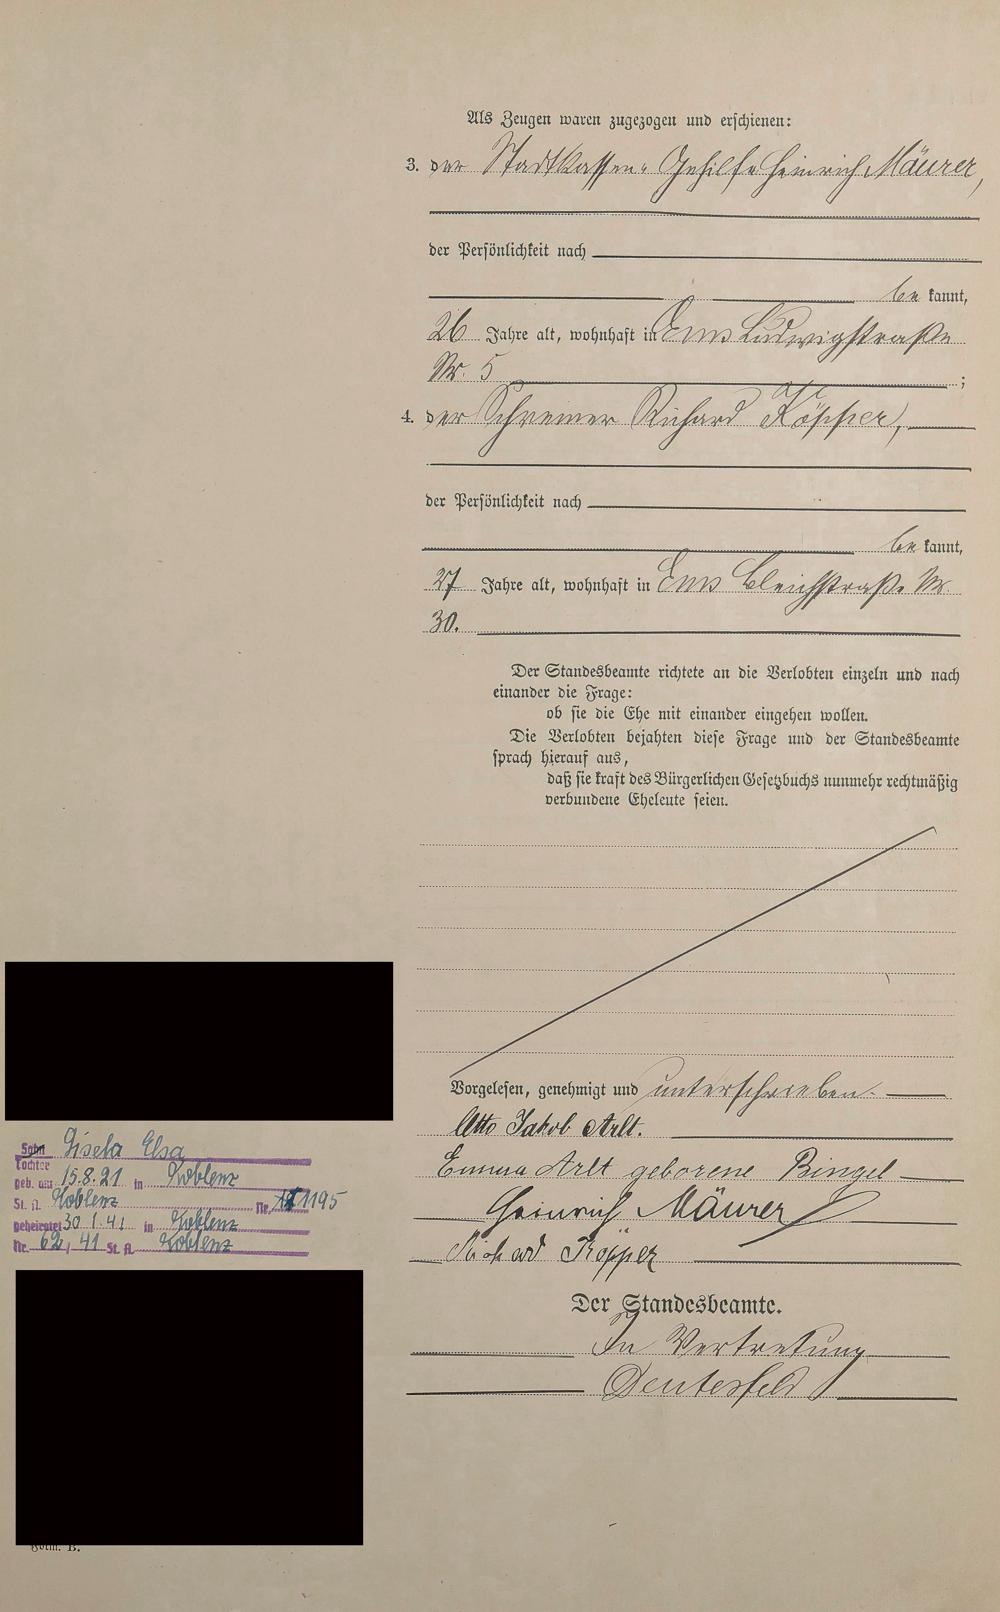 Als Zeugen waren zugezogen und erschienen:
3. der Stadtkassen-Gehilfe Heinrich Mäurer,
der Persönlichkeit nach
be kannt,
26 Jahre alt, wohnhaft in Ems Ludwigstraße
Nr. 5 ;
4. der Schreiner Richard Töpper,
der Persönlichkeit nach
be kannt,
27 Jahre alt, wohnhaft in Ems Bleichstraße Nr.
30.
Der Standesbeamte richtete an die Verlobten einzeln und nach
einander die Frage:
ob sie die Ehe mit einander eingehen wollen.
Die Verlobten bejahten diese Frage und der Standesbeamte
sprach hierauf aus,
daß sie kraft des Bürgerlichen Gesetzbuchs nunmehr rechtmäßig
verbundene Eheleute seien.
Vorgelesen, genehmigt und unterschrieben.
Otto Jakob Arlt.
Emma Arlt geborene Bingel
Heinrich Mäurer
Richard Töpper
Der Standesbeamte.
In Vertretung
Deutesfeld
Sohn Gisela Elsa
Tochter
geb. am 15.8.21 in Koblenz
St. A. Koblenz Nr. 1195
geheiratet 30.1.41 in Koblenz
Nr. 62/41 St. A. Koblenz
Form. B.